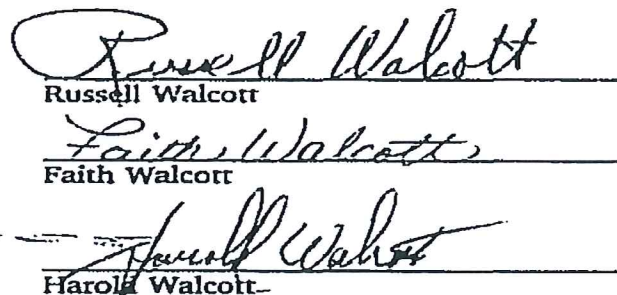 Russell Walcott
Russell Walcott
Faith Walcott
Faith Walcott
Harold Walcott
Harold Walcott